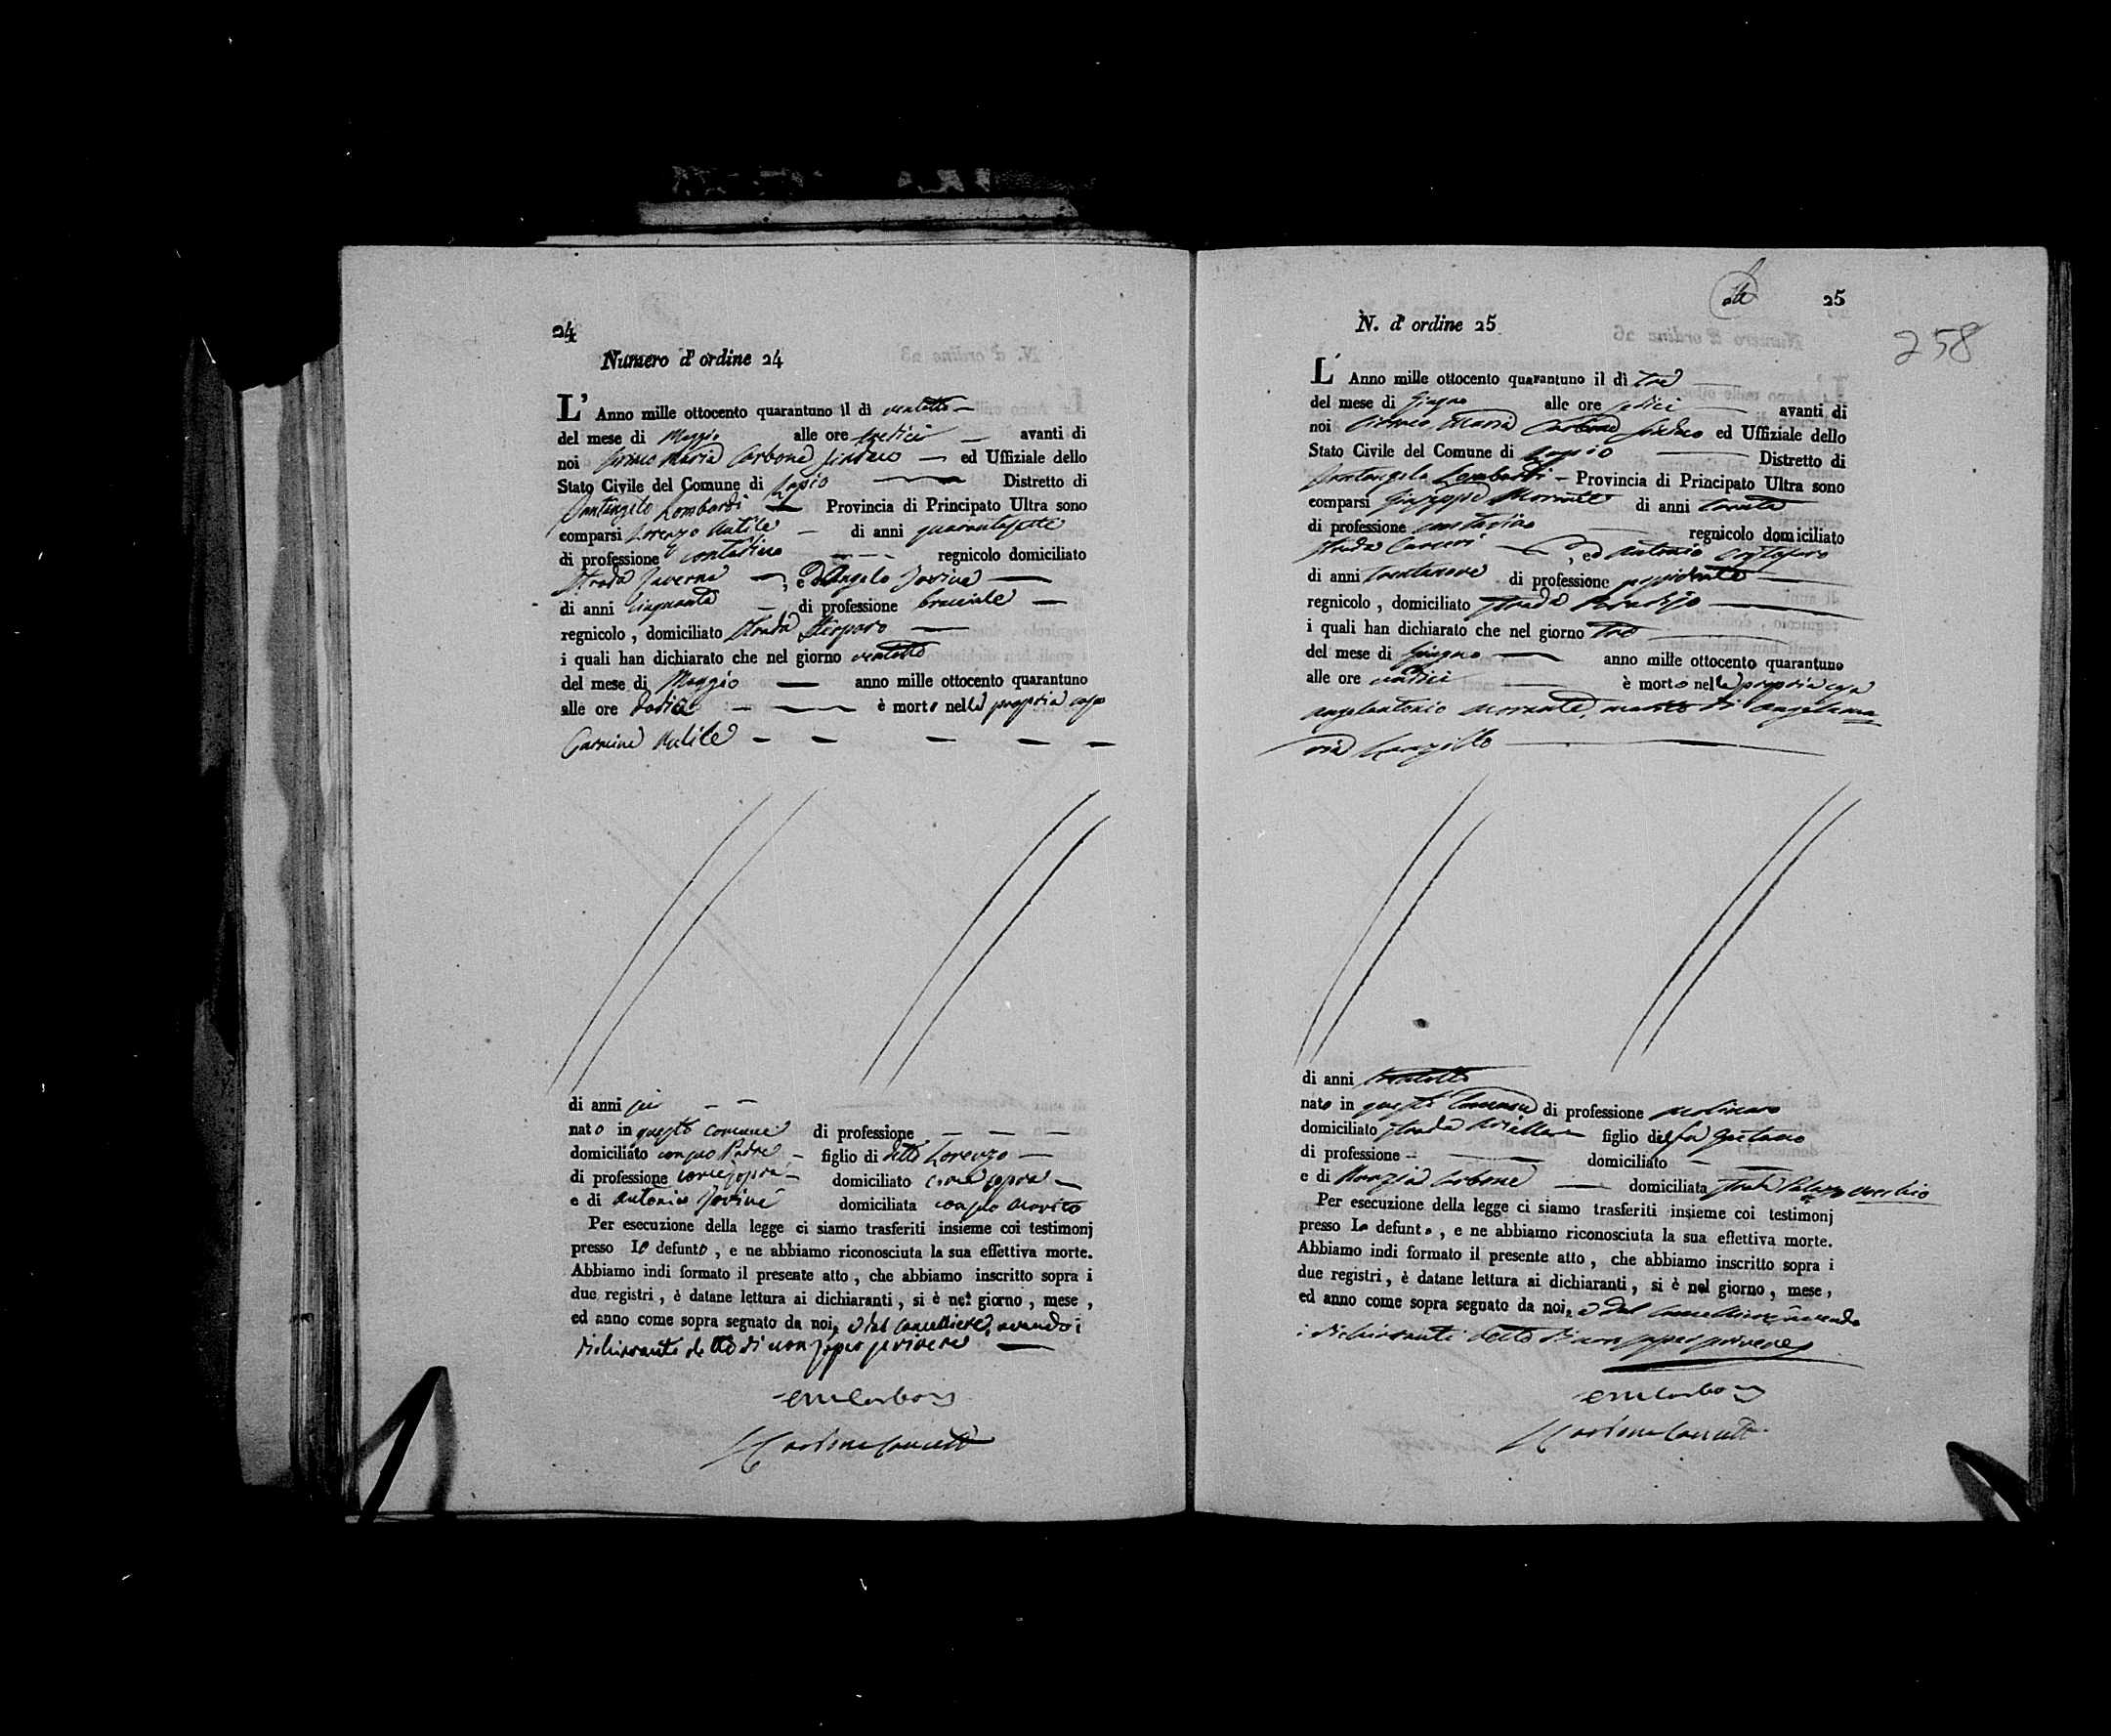 24
Numero d' ordine 24
L' Anno mille ottocento quarantuno il di ventotto
del mese di Maggio alle ore tredici avanti di
noi Maria Carbone Sindaco ed Uffiziale dello
Stato Civile del Comune di Lapio Distretto di
Santangelo Lombardi Provincia di Principato Ultra sono
comparsi Lorenzo Autile di anni quarantasette
di professione contadino regnicolo domiciliato
Strada Taverna , ed Angelo Jovine
di anni cinquanta di professione bracciale
regnicolo , domiciliato Strada
i quali han dichiarato che nel giorno ventotto
del mese di Maggio anno mille ottocento quarantuno
alle ore dodici è morto nella propria casa
Carmine Autile
di anni sei
nato in questo comune di professione
domiciliato con suo Padre figlio di detto Lorenzo
di professione come sopra domiciliato come sopra
e di Antonia Jovine domiciliata con suo marito
Per esecuzione della legge ci siamo trasferiti insieme coi testimonj
presso lo defunto , e ne abbiamo riconosciuta la sua effettiva morte.
Abbiamo indi formato il presente atto , che abbiamo inscritto sopra i
due registri , è datane lettura ai dichiaranti , si è nel giorno , mese ,
ed anno come sopra segnato da noi, e dal Cancelliere, avendo i
dichiaranti detto di non saper scrivere
25
258
N. d' ordine 25
L' Anno mille ottocento quarantuno il di tre
del mese di Giugno alle ore sedici avanti di
noi Maria Carbone Sindaco ed Uffiziale dello
Stato Civile del Comune di Lapio Distretto di
Santangelo Lombardi - Provincia di Principato Ultra sono
comparsi Giuseppe Morante di anni trenta
di professione contadino regnicolo domiciliato
strada Carceri , ed Antonio
di anni trentanove di professione possidente
regnicolo , domiciliato strada
i quali han dichiarato che nel giorno tre
del mese di Giugno anno mille ottocento quarantuno
alle ore undici è morto nella propria casa
Angelantonio Morante, marito di Angelama
ria
di anni trentotto
nato in questo Comune di professione molinaro
domiciliato strada figlio del fu Gaetano
di professione domiciliato
e di Carbone domiciliata strada Palazzo vecchio
Per esecuzione della legge ci siamo trasferiti insieme coi testimonj
presso lo defunto , e ne abbiamo riconosciuta la sua effettiva morte.
Abbiamo indi formato il presente atto , che abbiamo inscritto sopra i
due registri , è datane lettura ai dichiaranti , si è nel giorno , mese ,
ed anno come sopra segnato da noi, e dal Cancelliere avendo
i dichiaranti detto di non saper scrivere